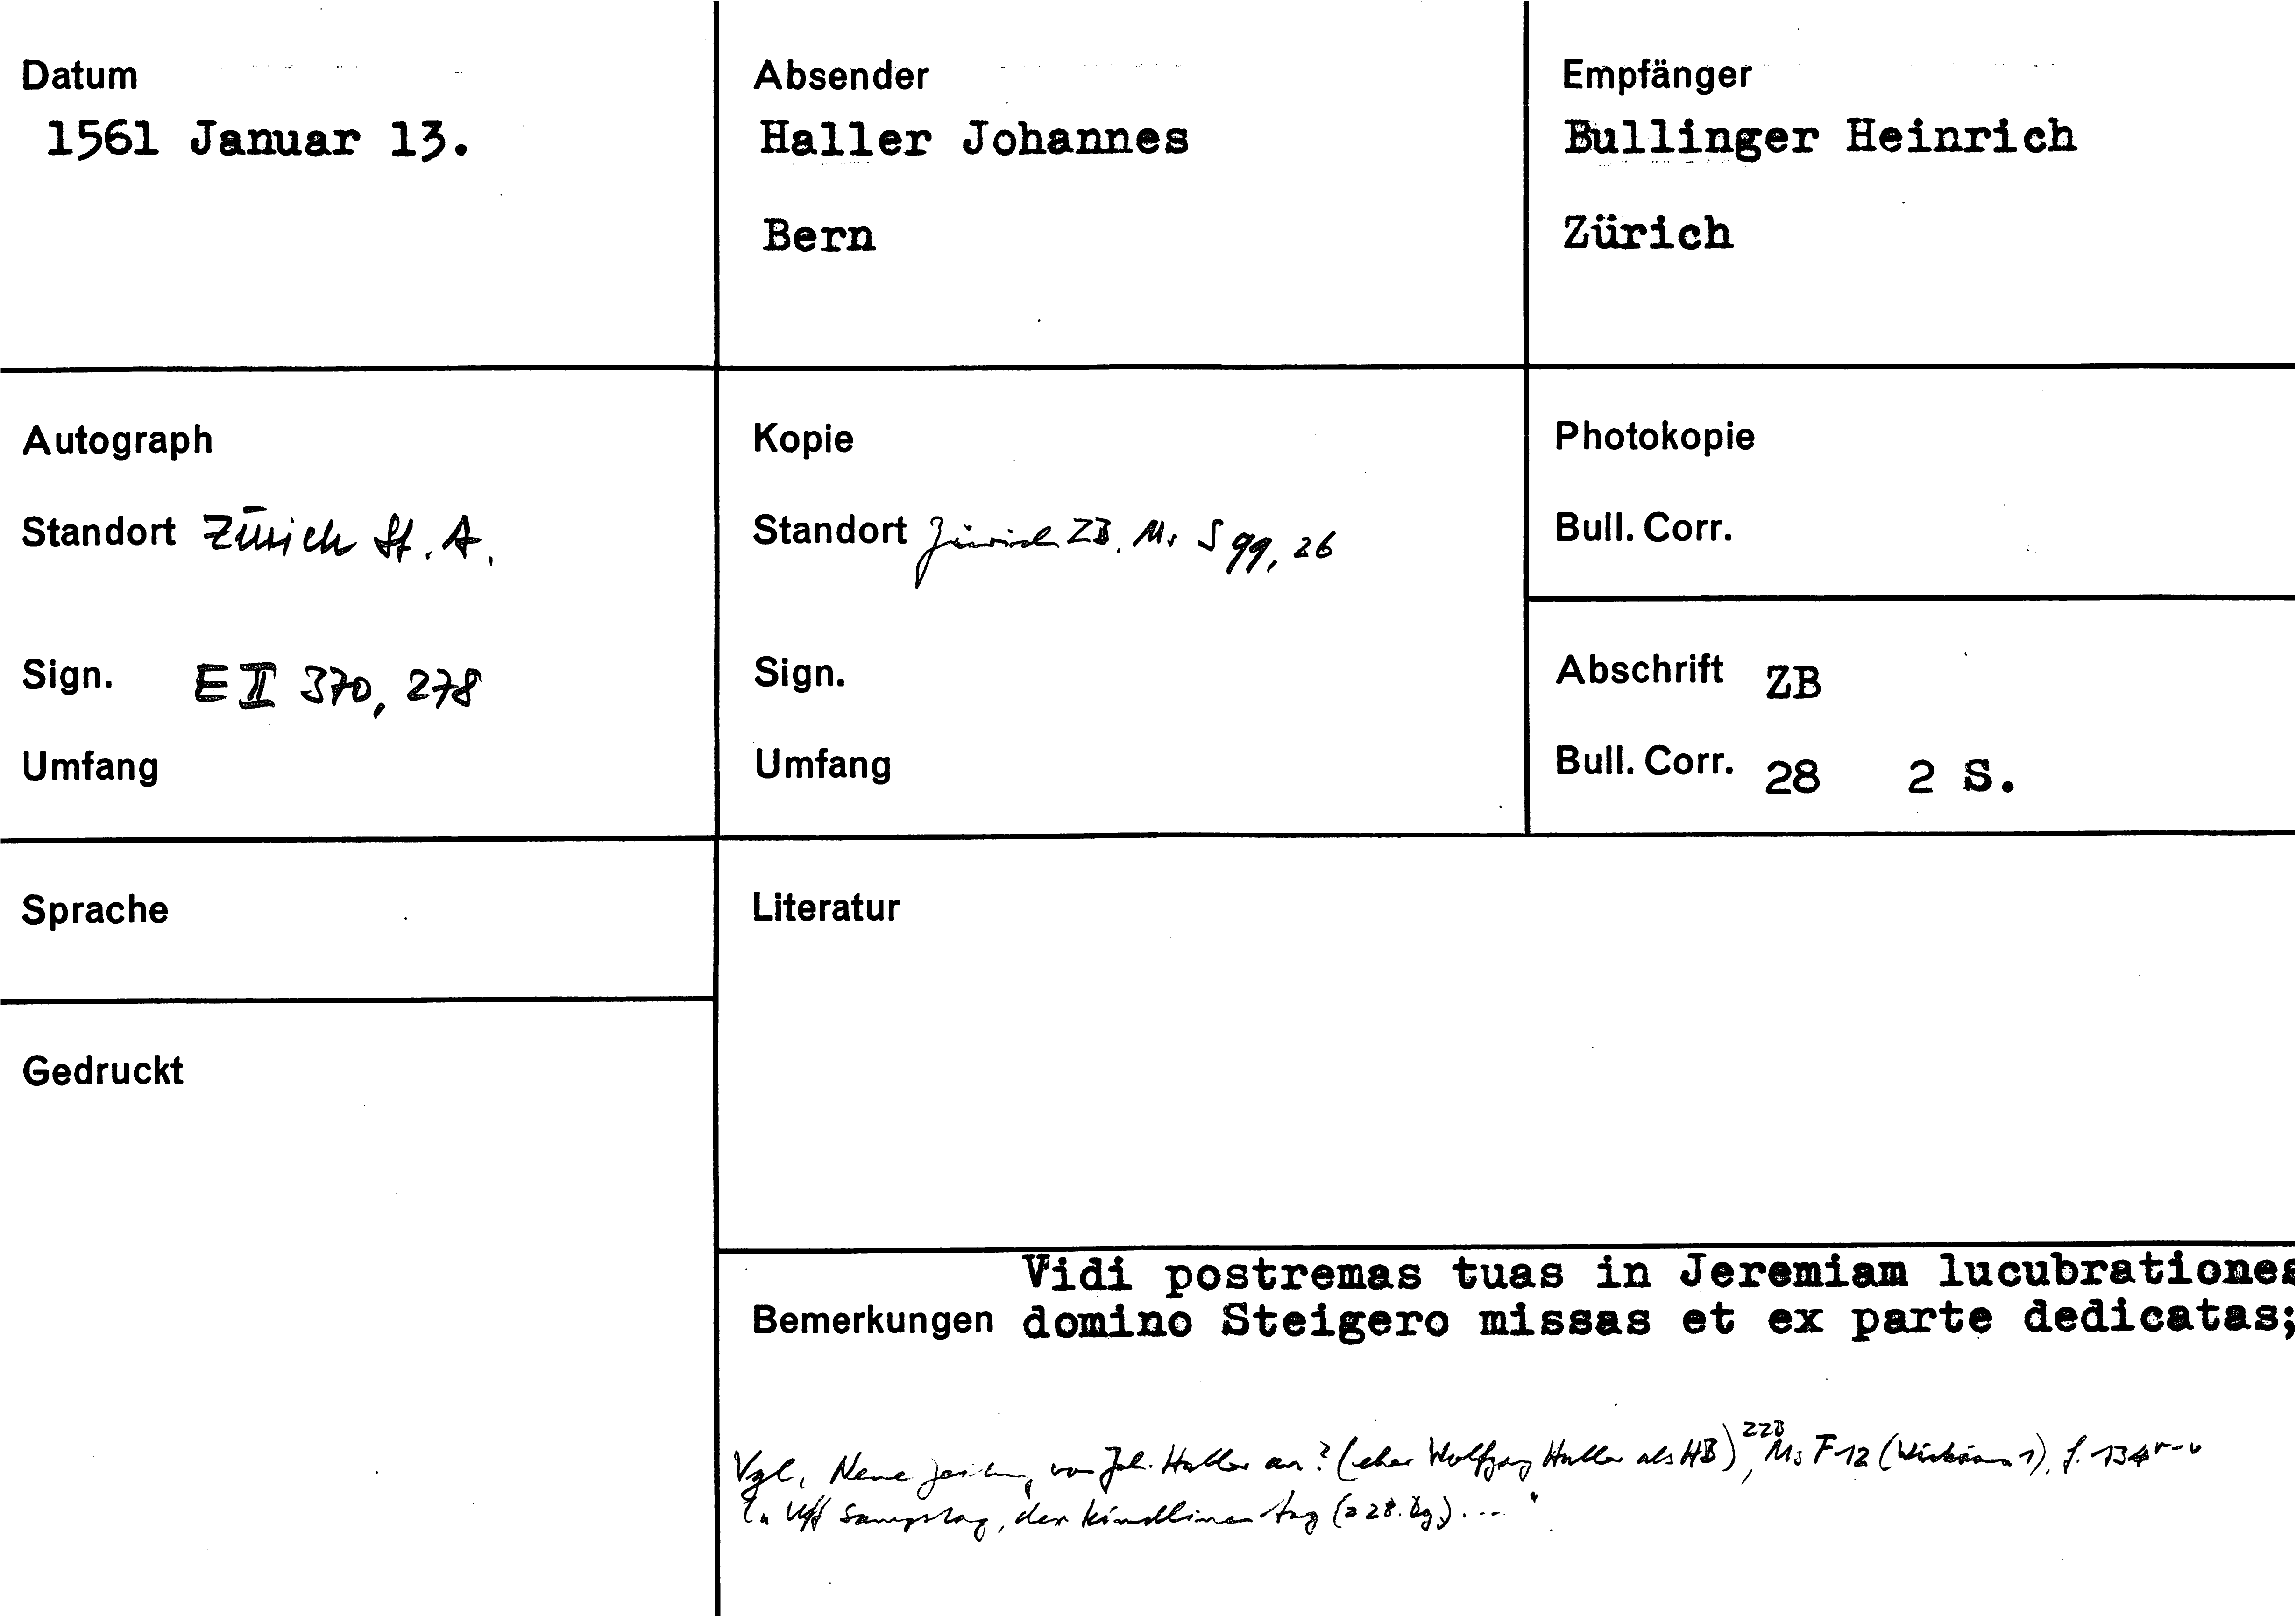 Datum
1561 Januar 13.
Absender
Haller Johannes
Bern
Empfänger
Bullinger Heinrich
Zürich
Autograph
Standort Zürich St. A.
Sign. E II 370, 278
Umfang
Kopie
Standort Zürich ZB. Ms S 99, 26
Sign.
Umfang
Photokopie
Bull. Corr.
Abschrift ZB
Bull. Corr. 28 2 S.
Sprache
Gedruckt
Literatur
Bemerkungen
Vidi postremas tuas in Jeremiam lucubrationes
domino Steigero missas et ex parte dedicatas;
Vgl. Neue von Joh. Haller an? (eher Wolfgang Haller als HB), ZZB Ms F 12 f. 134r-v
Uff sampstag, der kindlinen tag (= 28. Dg.) ...."